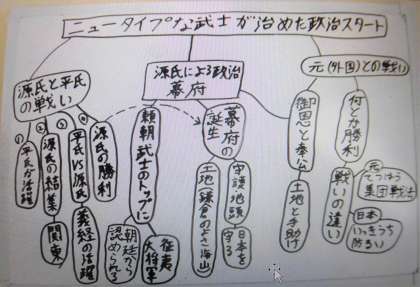 ニュータイプな武士が治めた政治スタート
源氏と平氏
の戦い
① 平氏が活躍
② 源氏の結集
関東
③ 平氏VS源氏
義経の活躍
源氏の勝利
源氏による政治
幕府
頼朝 武士のトップに
朝廷から
認められる
征夷
大将軍
幕府の
誕生
土地 鎌倉のよさ 海山
守護 地頭
日本を
守る
御恩と奉公
土地と手助け
元(外国)との戦い
何とか勝利
戦いの違い
元
てつはう
集団戦法
日本
いっきうち